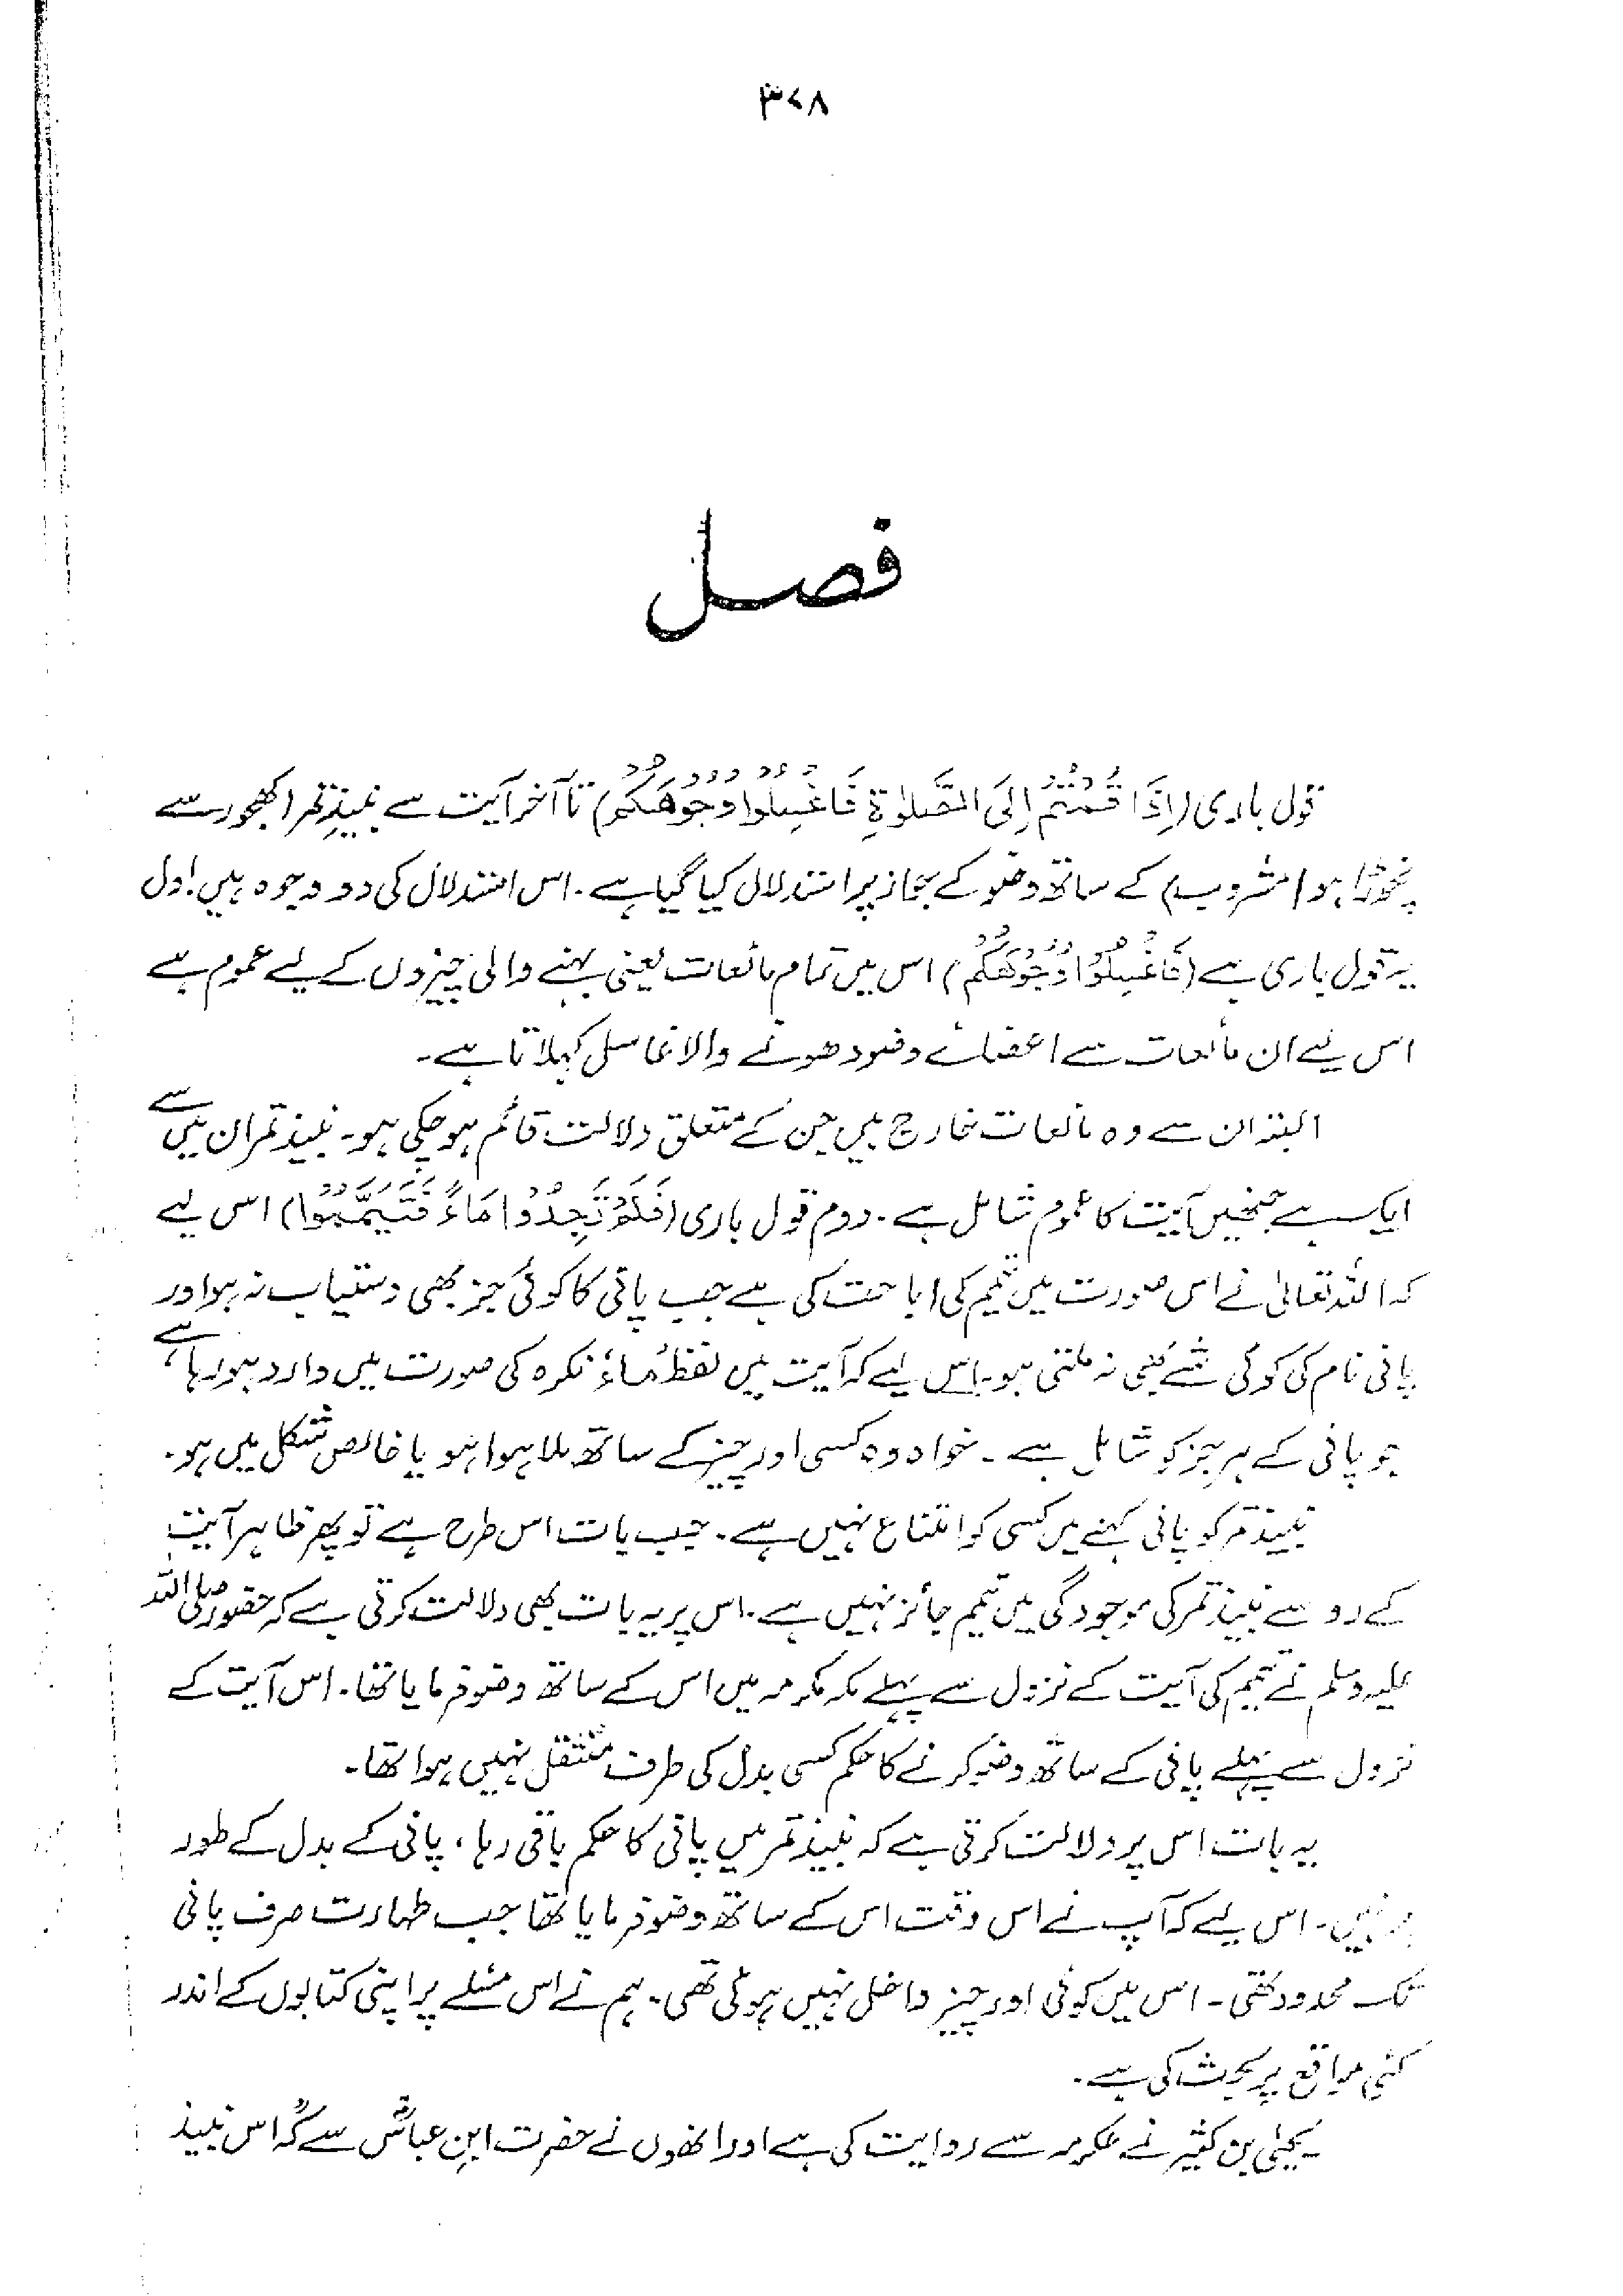 ۳۷۸
فصل
قول باری (اِذَا قُمْتُمْ اِلَی الصَّلٰوۃِ فَاغْسِلُوْا وُجُوْھَکُمْ) تا آخر آیت سے نبیذِ تمر (کھجور سے
نچوڑا ہوا مشروب) کے ساتھ وضو کے جواز پر استدلال کیا گیا ہے۔ اس استدلال کی دو وجوہ ہیں۔ اول
یہ قول باری ہے (فَاغْسِلُوْا وُجُوْھَکُمْ) اس میں تمام مائعات یعنی بہنے والی چیزوں کے لیے عموم ہے
اس لیے ان مائعات سے اعضائے وضو دھونے والا غاسل کہلاتا ہے۔
البتہ ان سے وہ مائعات خارج ہیں جن کے متعلق دلالت قائم ہو چکی ہو۔ نبیذ تمر ان میں سے
ایک ہے جنھیں آیت کا عموم شامل ہے۔ دوم قول باری (فَلَمْ تَجِدُوْا مَاءً فَتَیَمَّمُوْا) اس لیے
کہ اللہ تعالیٰ نے اس صورت میں تیمم کی اباحت کی ہے جب پانی کا کوئی جز بھی دستیاب نہ ہو اور
پانی نام کی کوئی شئے بھی نہ ملتی ہو۔ اس لیے کہ آیت میں لفظ ’مَاءً‘ نکرہ کی صورت میں وارد ہو رہا ہے،
جو پانی کے ہر جز کو شامل ہے۔ خواہ وہ کسی اور چیز کے ساتھ ملا ہوا ہو یا خالص شکل میں ہو۔
نبیذ تمر کو پانی کہنے میں کسی کو امتناع نہیں ہے۔ جب بات اس طرح ہے تو پھر ظاہر آیت
کے رو سے نبیذ تمر کی موجودگی میں تیمم جائز نہیں ہے۔ اس پر یہ بات بھی دلالت کرتی ہے کہ حضور صلی اللہ
علیہ وسلم نے تیمم کی آیت کے نزول سے پہلے مکہ مکرمہ میں اس کے ساتھ وضو فرمایا تھا۔ اس آیت کے
نزول سے پہلے پانی کے ساتھ وضو کرنے کا حکم کسی بدل کی طرف منتقل نہیں ہوا تھا۔
یہ بات اس پر دلالت کرتی ہے کہ نبیذ تمر میں پانی کا حکم باقی رہا، پانی کے بدل کے طور
پر نہیں۔ اس لیے کہ آپ نے اس وقت اس کے ساتھ وضو فرمایا تھا جب طہارت صرف پانی
تک محدود تھی۔ اس میں کوئی اور چیز داخل نہیں ہوئی تھی۔ ہم نے اس مسئلے پر اپنی کتابوں کے اندر
کئی مواقع پر بحث کی ہے۔
یحییٰ بن کثیر نے عکرمہ سے روایت کی ہے اور انھوں نے حضرت ابن عباسؓ سے کہ اس نبیذ